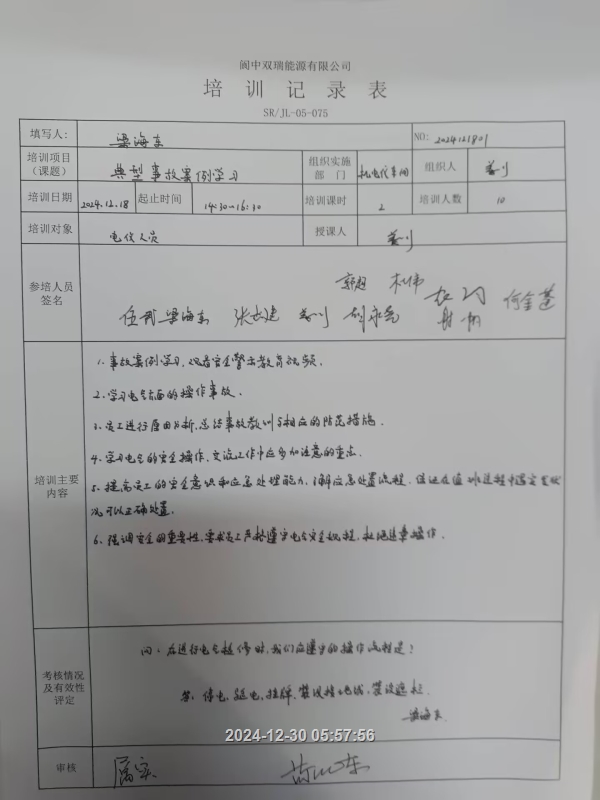 阆中双瑞能源有限公司
培训记录表
SR/JL-05-075
填写人： 梁海东 NO: 2024121801
培训项目（课题） 典型事故案例学习 组织实施部门 机电仪车间 组织人
培训日期 2024.12.18 起止时间 14:30~16:30 培训课时 2 培训人数 10
培训对象 电仪人员 授课人
参培人员签名
郭超 何金蓬
任武 梁海东 张长建
培训主要内容
1. 事故案例学习、观看安全警示教育视频。
2. 学习电气方面的操作事故。
3. 员工进行原因分析、总结事故教训与相应的防范措施。
4. 学习电气的安全操作、交流工作中应多加注意的重点。
5. 提高员工的安全意识和应急处理能力，了解应急处置流程，保证在值班过程中遇突发状
况可以正确处置。
6. 强调安全的重要性，要求员工严格遵守电气安全规程，杜绝违章操作。
考核情况及有效性评定
问：在进行电气检修时，我们应遵守的操作流程是？
答：停电、验电、挂牌、装设接地线、装设遮栏。
梁海东
2024-12-30 05:57:56
审核 属实